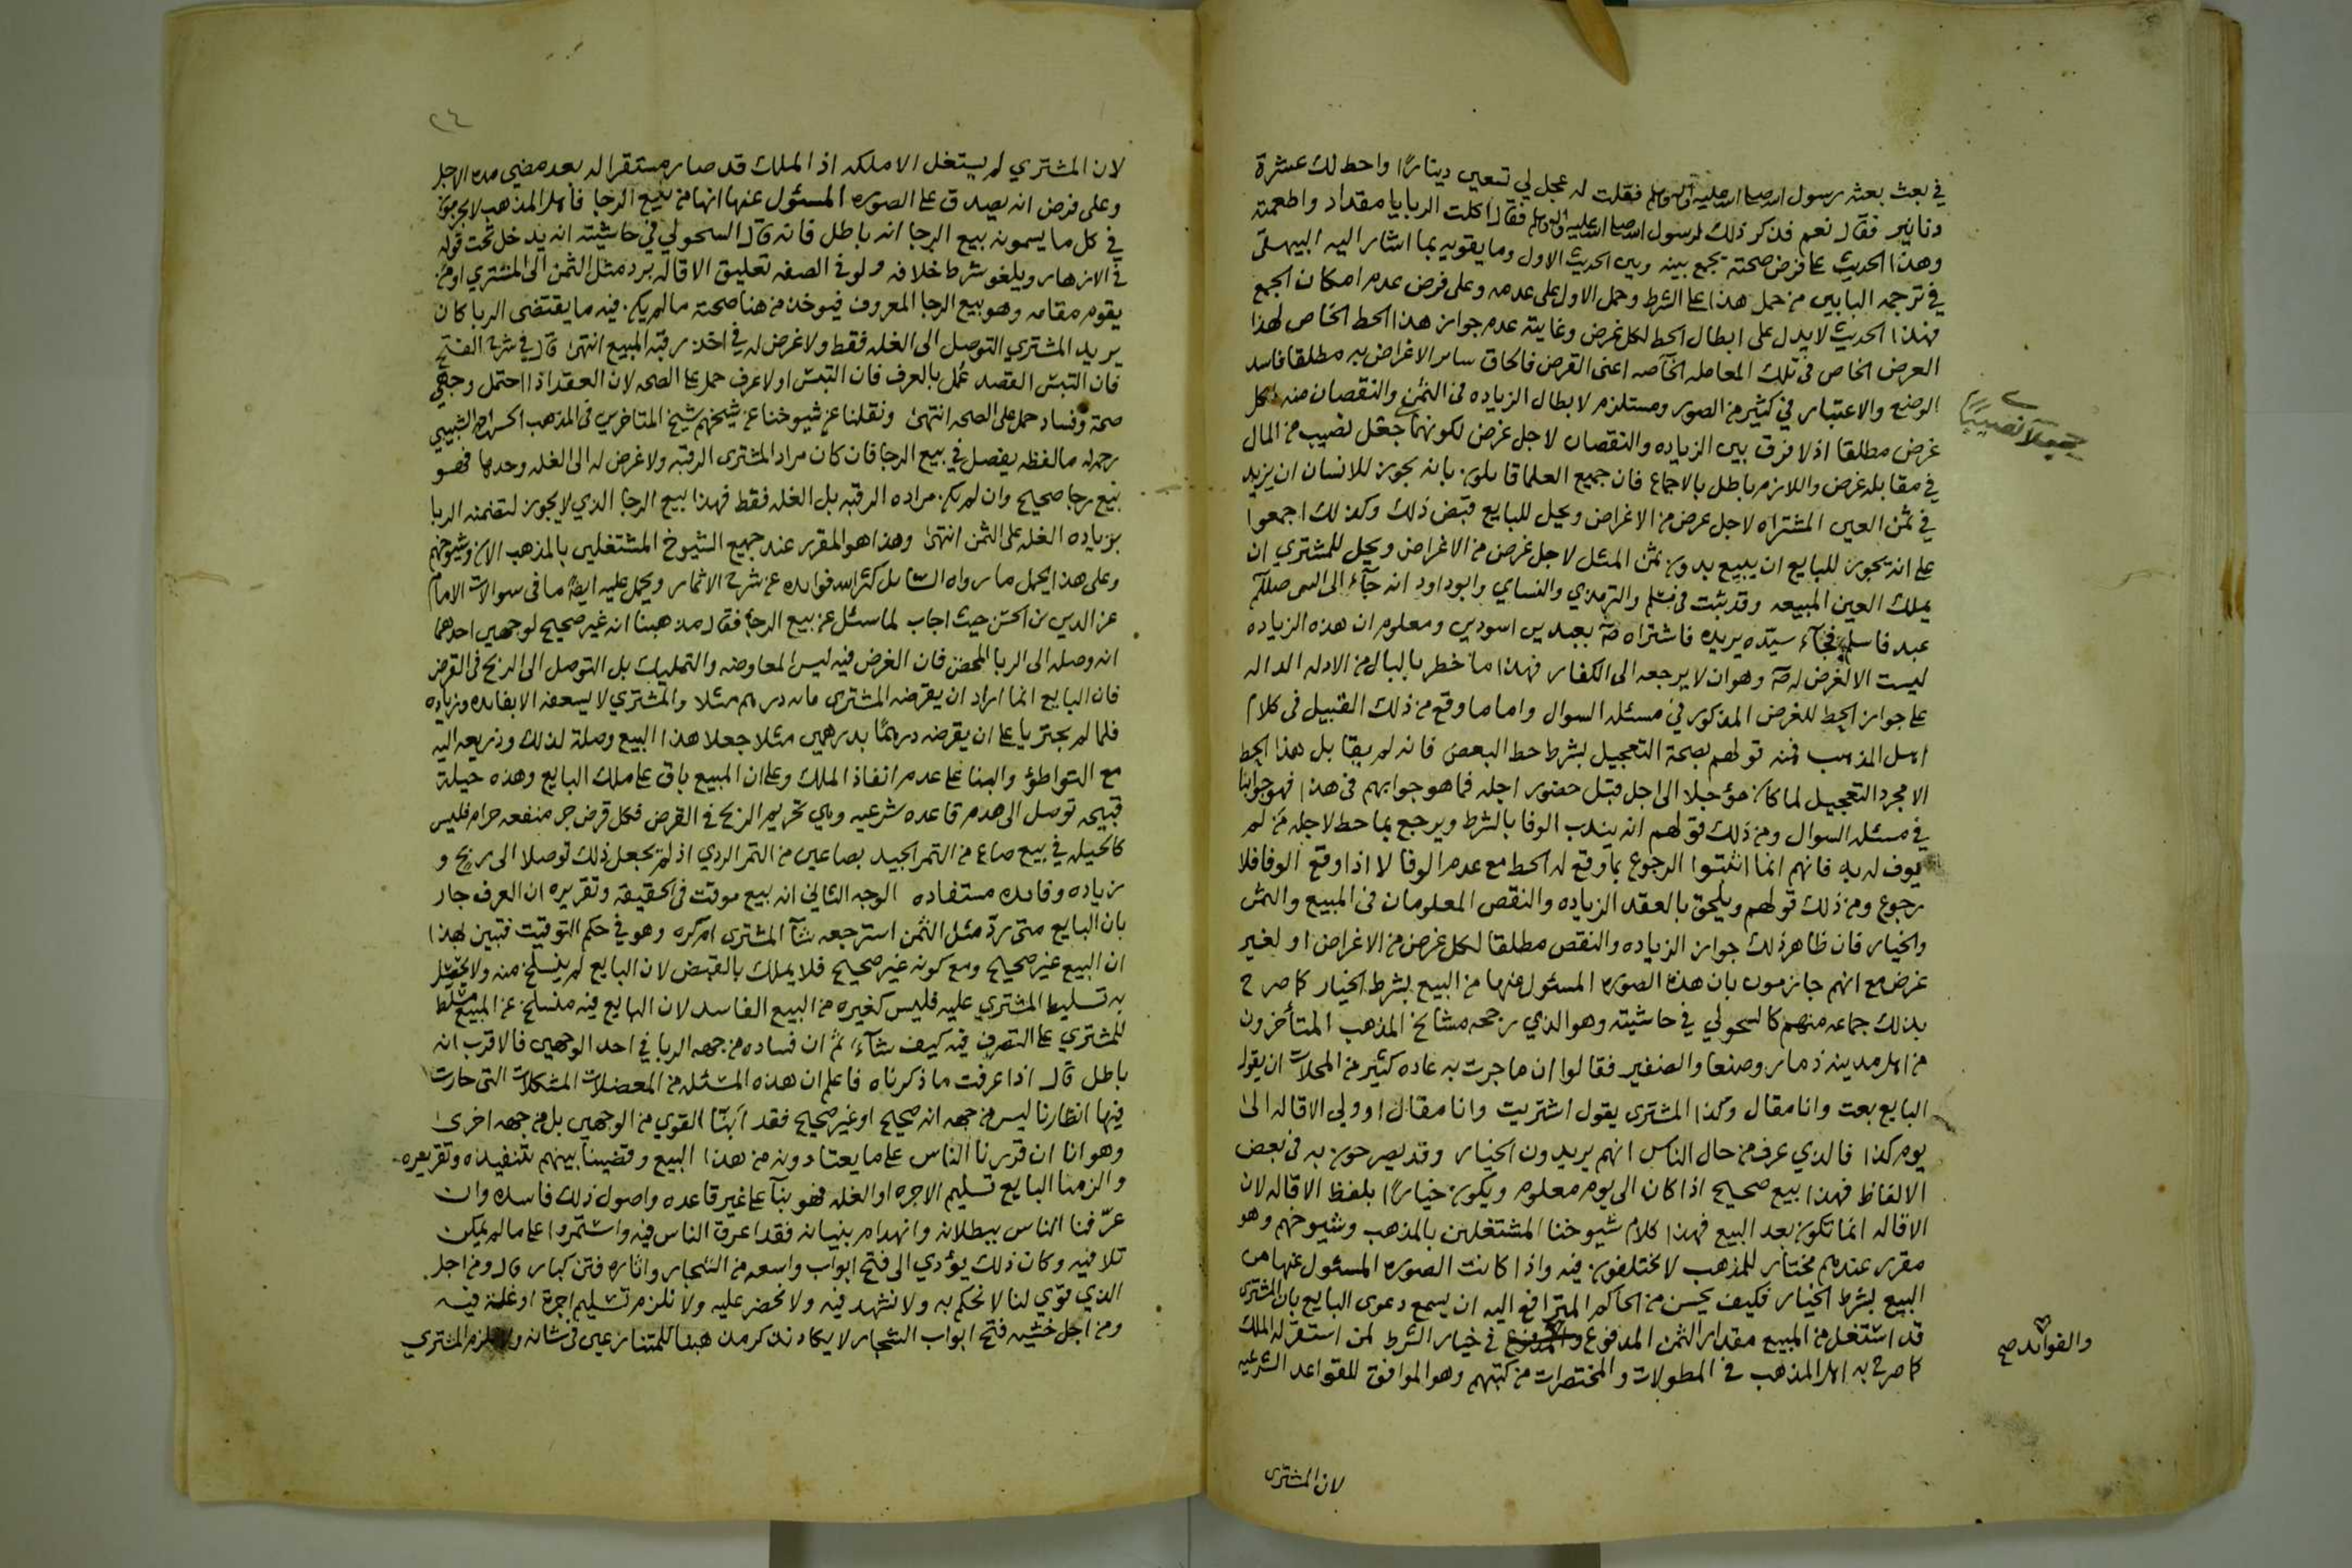 في بعث بعثه رسول الله صلى الله عليه وآله وسلم فقلت له عجل لي تسعين دينارًا واحط لك عشرة
دنانير فقال نعم فذكر ذلك لرسول الله صلى الله عليه وآله وسلم فقال اكلت الربا يا مقداد واطعمته
وهذا الحديث على فرض صحته يجمع بينه وبين الحديث الاول وما يقويه بما اشار اليه البيهقي
في ترجمه البابين من حمل هذا على الشرط وحمل الاول على عدمه وعلى فرض عدم امكان الجمع
فهذا الحديث لا يدل على ابطال الحط لكل غرض وغايته عدم جواز هذا الحط الخاص لهذا
الغرض الخاص في تلك المعامله الخآصه اعني القرض فالحاق ساير الاغراض به مطلقا فاسد
الوضع والاعتبار في كثير من الصور ومستلزم لابطال الزياده في الثمن والنقصان منه لكل
غرض مطلقا اذ لا فرق بين الزياده والنقصان لاجل غرض لكونهما جعل نصيب من المال
جعلا نصيبًا
في مقابله غرض واللازم باطل بالاجماع فان جميع العلما قايلون بانه يجوز للانسان ان يزيد
في ثمن العين المشتراه لاجل غرض من الاغراض ويحل للبايع قبض ذلك وكذلك اجمعوا
على انه يجوز للبايع ان يبيع بدون ثمن المثل لاجل غرض من الاغراض ويحل للمشتري ان
يملك العين المبيعه وقد ثبت في مسلم والترمذي والنساي وابو داود انه جآء الى النبي صللم
عبد فاسلم فجآء سيّده يريده فاشتراه صلم بعبدين اسودين ومعلوم ان هذه الزياده
ليست الا لغرض له صلم وهو ان لا يرجعه الى الكفار فهذا ما خطر بالبال من الادله الداله
على جواز الحط للغرض المذكور في مسئله السوال واما ما وقع من ذلك القبيل في كلام
اهل المذهب فمنه قولهم بصحة التعجيل بشرط حط البعض فانه لم يقابل هذا الحط
الا مجرد التعجيل لما كان مؤجلا الى اجل قبل حضور اجله فما هو جوابهم في هذا فهو جوابنا
في مسئله السوال ومن ذلك قولهم انه يندب الوفا بالشرط ويرجع بما حط لاجله من لم
يوف له به فانهم انما اثبتوا الرجوع بما وقع له الحط مع عدم الوفا لا اذا وقع الوفا فلا
رجوع ومن ذلك قولهم ويلحق بالعقد الزياده والنقص المعلومان في المبيع والثمن
والخيار فان ظاهر ذلك جواز الزياده والنقص مطلقا لكل غرض من الاغراض او لغير
غرض مع انهم جازمون بان هذه الصوره المسئول عنها من البيع بشرط الخيار كما صرح
بذلك جماعه منهم كالسحولي في حاشيته وهو الذي رجحه مشايخ المذهب المتأخرون
من اهل مدينه ذمار وصنعا والصنفير فقالوا ان ما جرت به عاده كثير من المحلات ان يقول
البايع بعت وانا مقال وكذا المشتري يقول اشتريت وانا مقال او ولي الاقاله الى
يوم كذا فالذي عرف من حال الناس انهم يريدون الخيار وقد يصرحون به في بعض
الالفاظ فهذا بيع صحيح اذا كان الى يوم معلوم ويكون خيارًا بلفظ الاقاله لان
الاقاله انما تكون بعد البيع فهذا كلام شيوخنا المشتغلين بالمذهب وشيوخهم وهو
مقرر عندهم مختار للمذهب لا يختلفون فيه واذا كانت الصوره المسئول عنها من
البيع بشرط الخيار فكيف يحسن من الحاكم المترافع اليه ان يسمع دعوى البايع بان المشتري
قد استغل من المبيع مقدار الثمن المدفوع في خيار الشرط لمن استقر له الملك
والفوائد صح
كما صرح به اهل المذهب في المطولات والمختصرات من كتبهم وهو الموافق للقواعد الشرعيه
لان المشتري
٢٤
لان المشتري لم يستغل الا ملكه اذ الملك قد صار مستقرا له بعد مضي مده الاجل
وعلى فرض انه يصدق على الصوره المسئول عنها انها من بيع الرجا فأهل المذهب لا يجزمون
في كل ما يسمونه بيع الرجا انه باطل فانه قال السحولي في حاشيته انه يدخل تحت قوله
في الازهار ويلغو شرط خلافه ولو في الصفه تعليق الاقاله برد مثل الثمن الى المشتري او من
يقوم مقامه وهو بيع الرجا المعروف فيوخذ من هنا صحته ما لم يكن فيه ما يقتضي الربا كان
يريد المشتري التوصل الى الغله فقط ولا غرض له في اخذ رقبه المبيع انتهى قال في شرح الفتح
فان التبس القصد عُمل بالعرف فان التبس او لا عرف حمل على الصحه لان العقد اذا احتمل وجهي
صحة وفساد حمل على الصحه انتهى ونقلنا عن شيوخنا عن شيخهم شيخ المتاخرين في المذهب الحسن الشبيبي
رحمه الله ما لفظه يفصل في بيع الرجا فان كان مراد المشتري الرقبه ولا غرض له الى الغله وحدها فهو
بيع رجا صحيح وان لم يكن مراده الرقبه بل الغله فقط فهذا بيع الرجا الذي لا يجوز لتضمنه الربا
بزياده الغله على الثمن انتهى وهذا هو المقرر عند جميع الشيوخ المشتغلين بالمذهب الان وشيوخهم
وعلى هذا يحمل ما رواه السايل كثر الله فوايده عن شرح الاثمار ويحمل عليه ايضًا ما في سوالات الامام
عز الدين بن الحسن حيث اجاب لما سئل عن بيع الرجا فقال مذهبنا انه غير صحيح لوجهين احدهما
انه وصله الى الربا المحض فان الغرض فيه ليس المعاوضه والتمليك بل التوصل الى الربح في القرض
فان البايع انما اراد ان يقرضه المشتري مايه درهم مثلا والمشتري لا يسعفه الا بفايده وزياده
فلما لم يجتريا على ان يقرضه درهمًا بدرهمين مثلا جعلا هذا البيع وصلة لذلك وذريعه اليه
مع التواطؤ والبنا على عدم انفاذ الملك وعلى ان المبيع باق على ملك البايع وهذه حيلة
قبيحه توصل الى هدم قاعده شرعيه وهي تحريم الربح في القرض فكل قرض جر منفعه حرام فليس
كالحيله في بيع صاع من التمر الجيد بصاعين من التمر الردي اذ لم يجعل ذلك توصلا الى ربح و
زياده وفايده مستفاده الوجه الثاني انه بيع موقت في الحقيقه وتقريره ان العرف جار
بان البايع متى ردّ مثل الثمن استرجعه شآ المشتري ام كره وهو في حكم التوقيت فتبين بهذا
ان البيع غير صحيح ومع كونه غير صحيح فلا يملك بالقبض لان البايع لم ينسلخ منه ولا يحصل
به تسليط المشتري عليه فليس كغيره من البيع الفاسد لان البايع فيه منسلخ عن المبيع مسلط
للمشتري على التصرف فيه كيف شآء ثم ان فساده من جهه الربا في احد الوجهين فالاقرب انه
باطل قال اذا عرفت ما ذكرناه فاعلم ان هذه المسئله من المعضلات المشكلات التي حارت
فيها انظارنا ليس من جهه انه صحيح او غير صحيح فقد ابنّا القوي من الوجهين بل من جهه اخرى
وهو انا ان قررنا الناس على ما يعتادونه من هذا البيع وقضينا بينهم بتنفيذه وتقريره
والزمنا البايع تسليم الاجره او الغله فهو بنآ على غير قاعده واصول ذلك فاسده وان
عرّفنا الناس ببطلانه وانهدام بنيانه فقد اغرق الناس فيه واستمروا على ما لم يمكن
تلافيه وكان ذلك يؤدي الى فتح ابواب واسعه من الشجار واثاره فتن كبار قال ومن اجل
الذي قوي لنا لا نحكم به ولا نشهد فيه ولا نحضر عليه ولا نلزم تسليم اجرة او غلة فيه
ومن اجل خشيه فتح ابواب الشجار لا يكاد نذكر مذهبنا للمتنازعين في شانه ولا نلزم المشتري